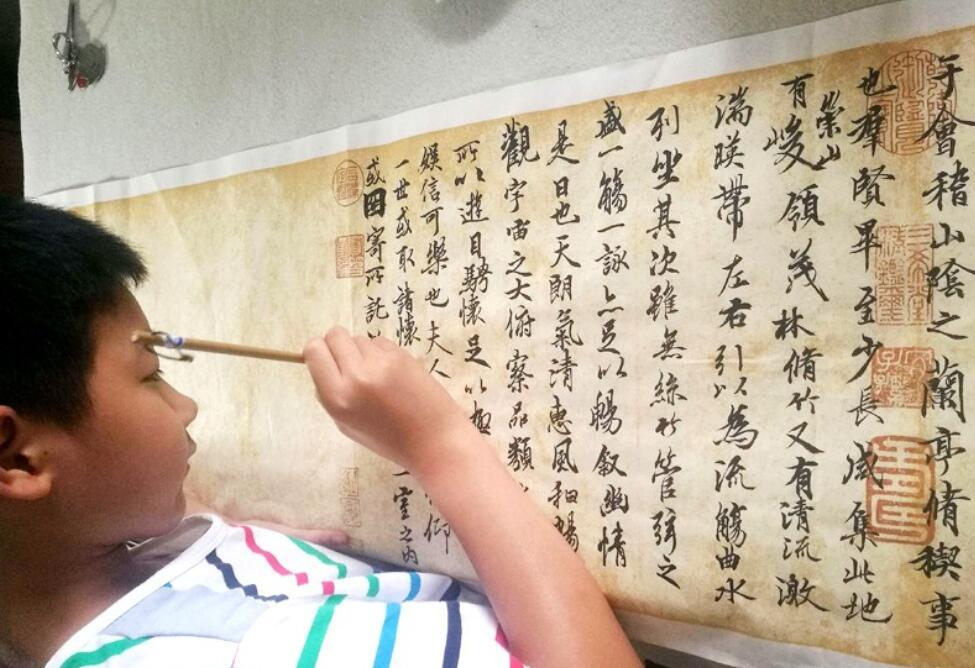 于會稽山陰之蘭亭脩稧事
也羣賢畢至少長咸集此地
有崇山峻領茂林脩竹又有清流激
湍暎帶左右引以為流觴曲水
列坐其次雖無絲竹管弦之
盛一觴一詠亦足以暢敘幽情
是日也天朗氣清惠風和暢
觀宇宙之大俯察品類
所以遊目騁懷足以極
娛信可樂也夫人仰
一世或取諸懷一室之內
或因寄所託